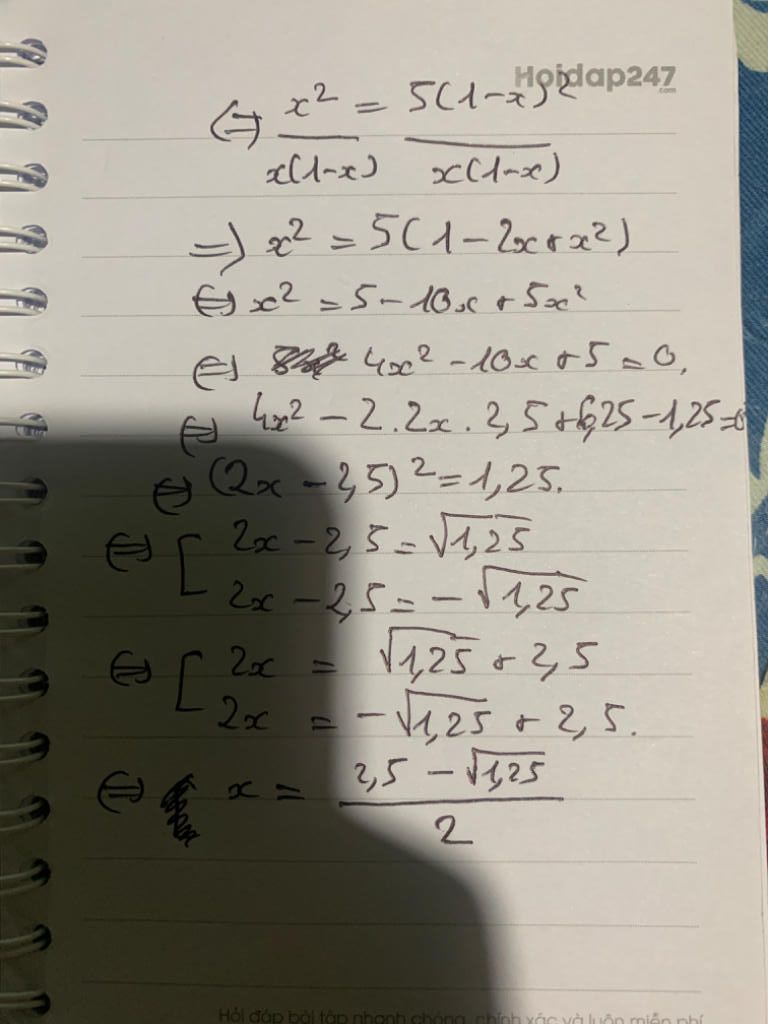 Hoidap247
.com
⇔ x² / x(1-x) = 5(1-x)² / x(1-x)
⇒ x² = 5(1-2x+x²)
⇔ x² = 5-10x+5x²
⇔ 4x²-10x+5=0.
⇔ 4x²-2.2x.2,5+6,25-1,25=0
⇔ (2x-2,5)²=1,25.
⇔ [ 2x-2,5=√1,25
2x-2,5=-√1,25
⇔ [ 2x = √1,25+2,5
2x = -√1,25+2,5.
⇔ x = (2,5-√1,25) / 2
Hỏi đáp bài tập nhanh chóng, chính xác và luôn miễn phí